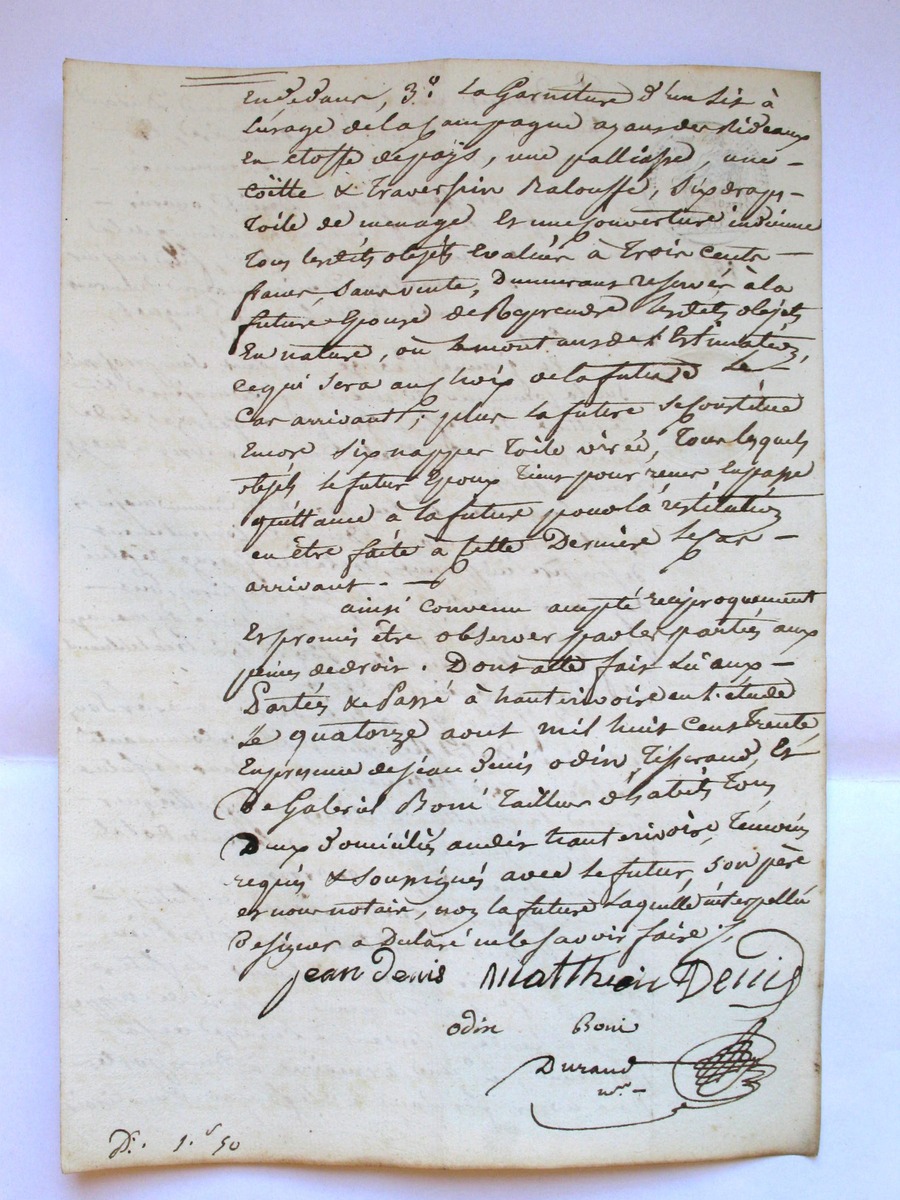 en dedans, 3.º La Garniture d'un Lit à
L'usage de la Campagne ayant des Rideaux
En étoffe de pays, une palliasse, une
coëtte & Traversin Balouffe, Six draps
toile de menage et une Couverture indienne
tous lesdits objets Evalués à Trois Cents
francs, Sans vente, Demeurant reservé à la
future Epouse de Reprendre lesdets objets
En nature, où le montant de l'Estimation,
ce qui sera au choix de la future Le
Cas arrivant; plus la future se Constitue
Encore Six nappes toile virée, Tous lesquels
objets le futur Epoux pour En passe
quittance à la future pour là réstitution
en être faite à Cette Derniere le Cas
arrivant.
ainsi convenu accepté réciproquement
Et promis être observer par les partiés aux
peines de droit. Dont acte fait Lû aux
Partiés & Passé à hauterivoire en l'étude
Le quatorze aout mil huit Cent Trente,
En presence de jéan Denis odin Tisserand, Et
De Galerie Boni Tailleur d'habits Tous
Deux Domiciliés audit hauterivoire, Témoins
requis & Soussignés avec le futur, son père
et nous notaire, non la future Laquelle interpellée
De signer a Declaré ne le savoir faire ./.
jean Denis Matthieu Denis
odin Boni
Durand
nre
Dt. 1.f 50